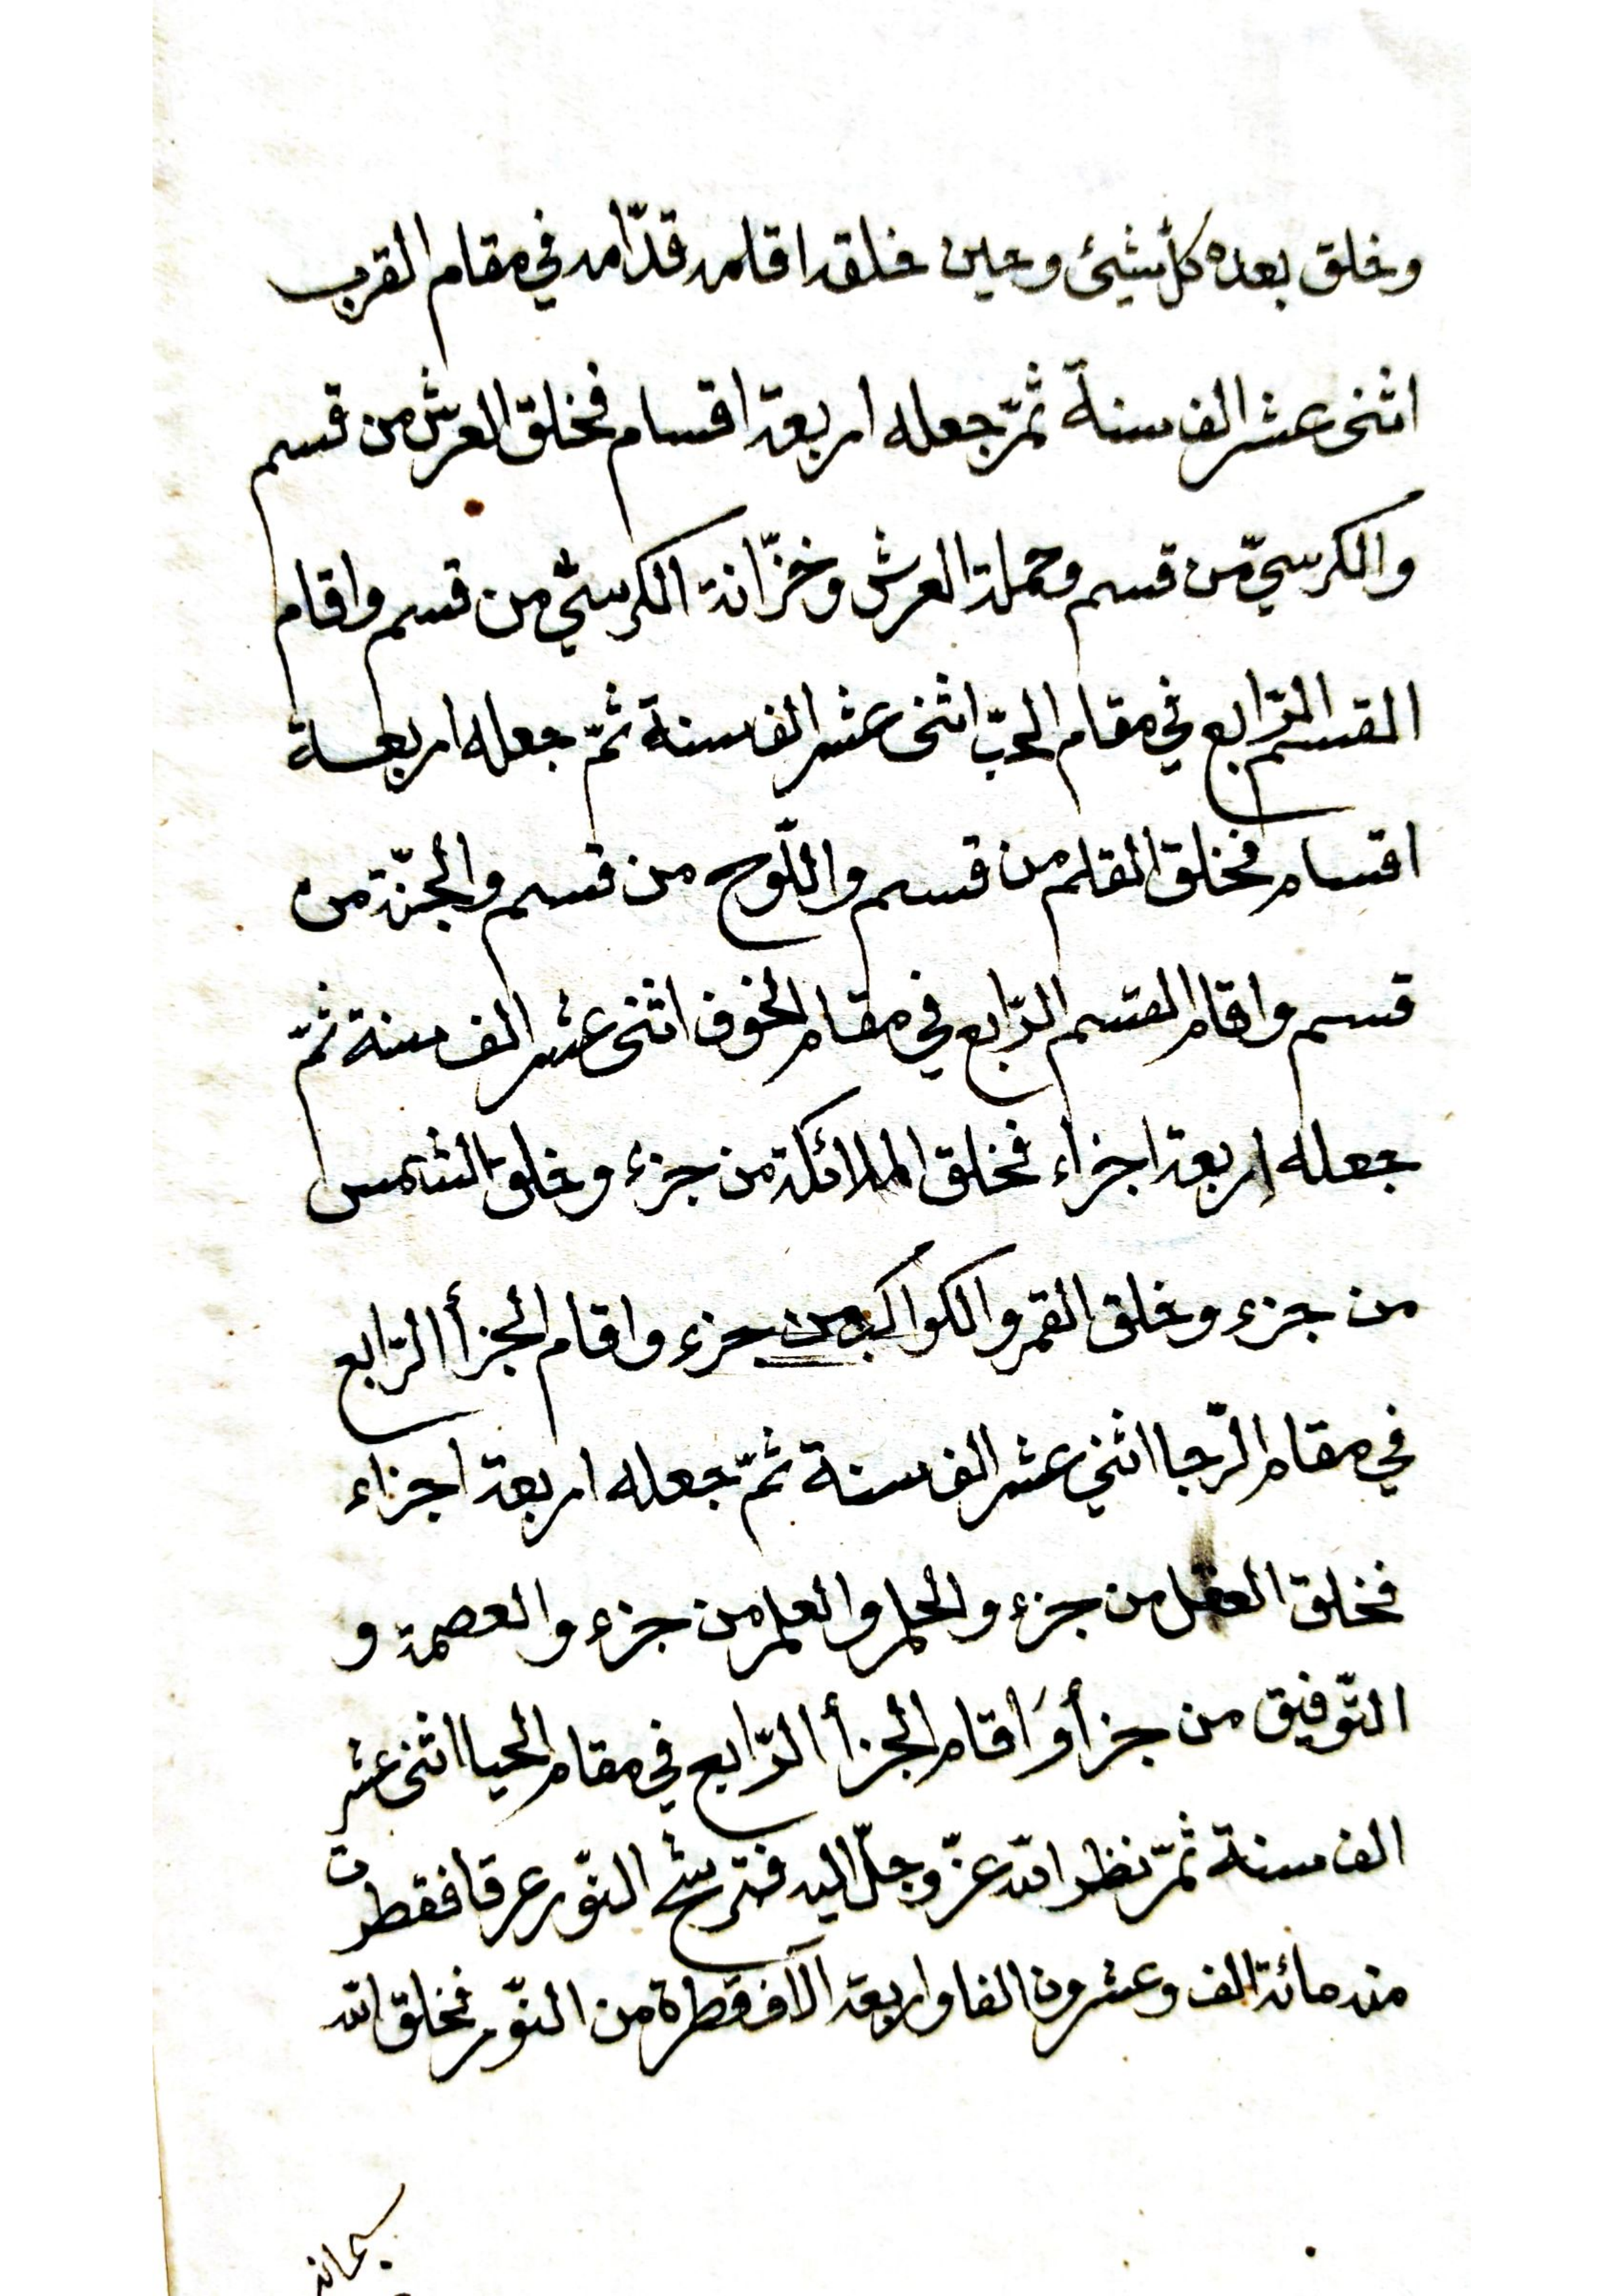 وخلق بعده كلّ شيئ وحين خلقه اقامه قدّامه في مقام القرب
اثنى عشر الف سنة ثمّ جعله اربعة اقسام فخلق العرش من قسم
والكرسيّ من قسم وحملة العرش وخزّانة الكرسيّ من قسم واقام
القسم الرّابع في مقام الحبّ اثنى عشر الف سنة ثمّ جعله اربعة
اقسام فخلق القلم من قسم واللّوح من قسم والجنّة من
قسم واقام القسم الرّابع في مقام الخوف اثنى عشر الف سنة ثمّ
جعله اربعة اجزاء فخلق الملائكة من جزء وخلق الشمس
من جزء وخلق القمر والكواكب من جزء واقام الجزأ الرّابع
في مقام الرّجا اثني عشر الف سنة ثمّ جعله اربعة اجزاء
فخلق العقل من جزء والحلم والعلم من جزء والعصمة و
التّوفيق من جزأ وَاقام الجزأ الرّابع في مقام الحيا اثنى عشر
الف سنة ثمّ نظر الله عزّ وجلّ اليه فترشّح النّور عرقا فقطرت
منه مائة الف وعشرون الفا واربعة الآف قطرة من النّور فخلق الله
سبحانه